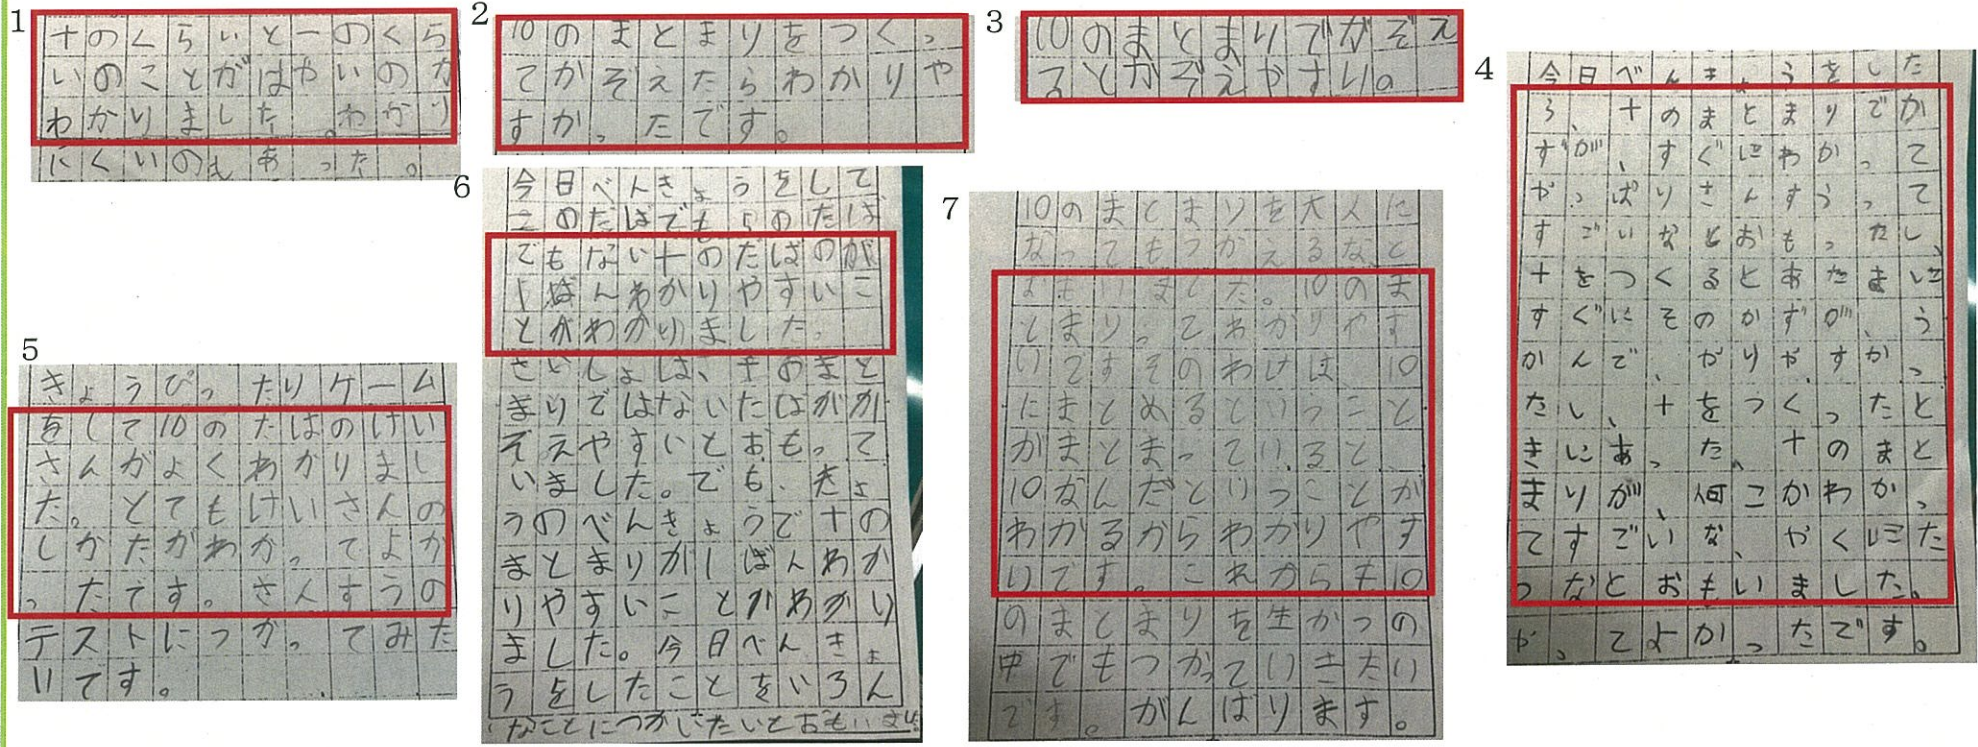 1
十のくらいと一のくら
いのことがはやいのが
わかりました。わかり
にくいのもあった。
2
10のまとまりをつくっ
てかぞえたらわかりや
すかったです。
3
10のまとまりでかぞえ
るとかぞえやすい。
4
今日べんきょうをした
ら、十のまとまりでか
ずが、すぐにわかって
やっぱりさんすうって
すごいなとおもったし、
十をつくるとあたまに
すぐにそのかずが、う
かんで、やりやすかっ
たし、十をつくったと
きにあった、十のまと
まりが、何こかわかっ
てすごいな、やくにた
つなとおもいました。
やってよかったです。
5
きょうぴったりゲーム
をして10のたばのけい
さんがよくわかりまし
た。とてもけいさんの
しかたがわかってよか
ったです。さんすうの
テストにつかってみた
いです。
6
今日べんきょうをして
二のたばでも5のたば
でもない十のたばのが
1ばんわかりやすいこ
とがわかりました。
さいしょは、十のまと
まりではないたばがか
ぞえやすいとおもって
いました。でも、きょ
うのべんきょうで十の
まとまりが1ばんわか
りやすいことがわかり
ました。今日べんきょ
うをしたことをいろん
なことにつかいたいとおもいます。
7
10のまとまりを大人に
なってもつかえるなと
おもいました。10のま
とまりってわかりやす
いですそのわけは、10
にまとめるということ
がまとまっていると、
10なんだということが
わかるからわかりやす
いです。これからも10
のまとまりを生かつの
中でもつかっていきたい
です。がんばります。